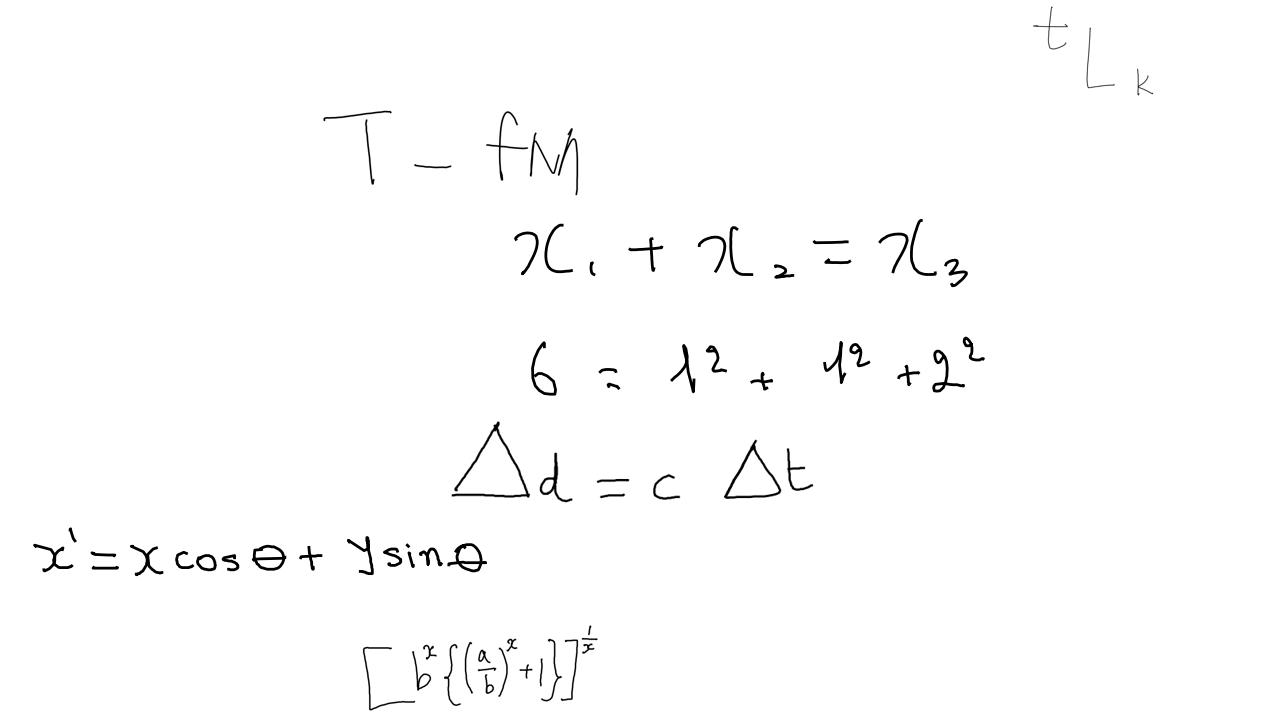 t L k
T - fM
x₁ + x₂ = x₃
6 = 1² + 1² + 2²
Δd = c Δt
x' = x cos θ + y sin θ
[b^x {(a/b)^x + 1}]^(1/x)